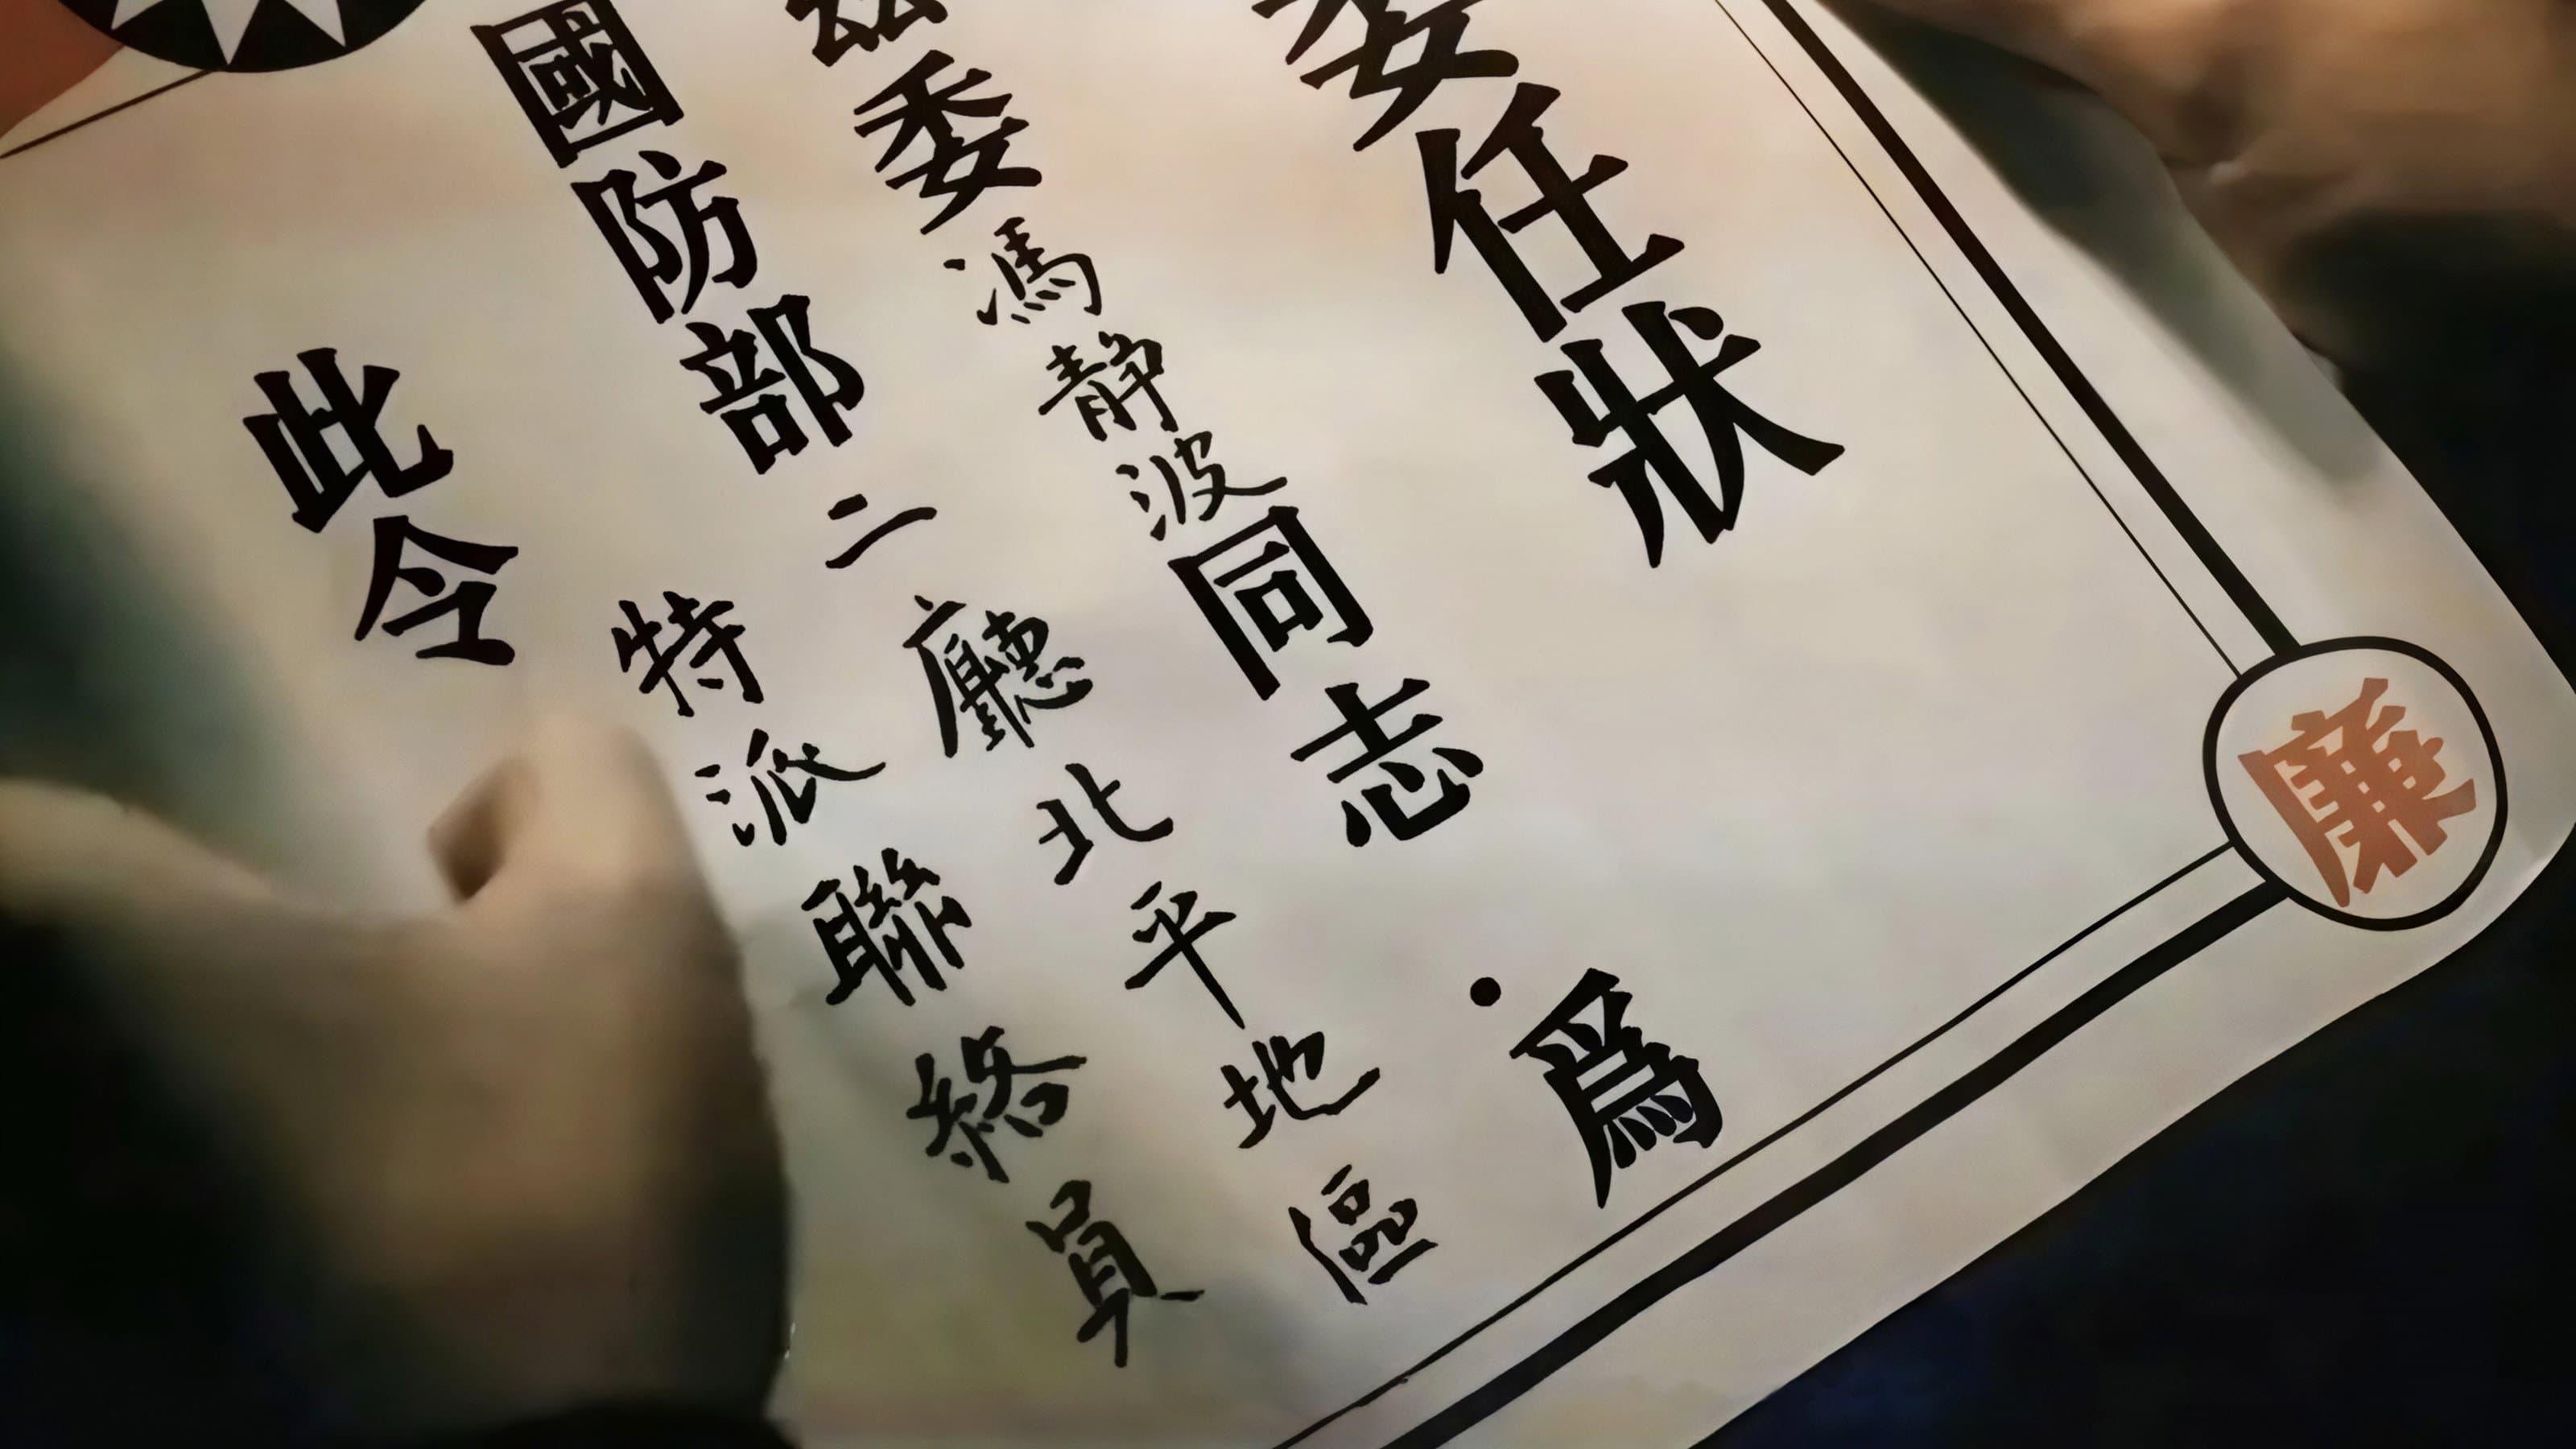 委任狀
茲委馮靜波同志·爲
國防部二廳北平地區
特派聯絡員
此令
廉